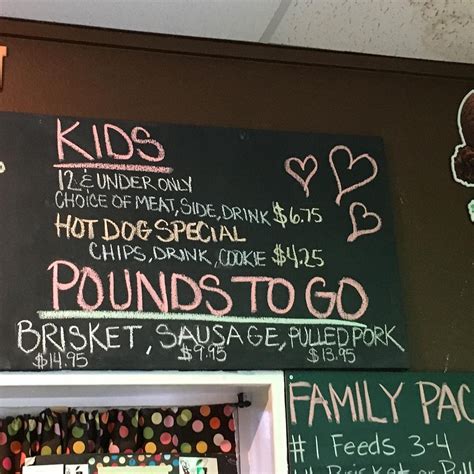 KIDS
12 & UNDER ONLY
CHOICE OF MEAT, SIDE, DRINK $6.75
HOT DOG SPECIAL
CHIPS, DRINK, COOKIE $4.25
POUNDS TO GO
BRISKET, SAUSAGE, PULLED PORK
$14.95 $9.95 $13.95
FAMILY PAC
#1 Feeds 3-4
Brisket or